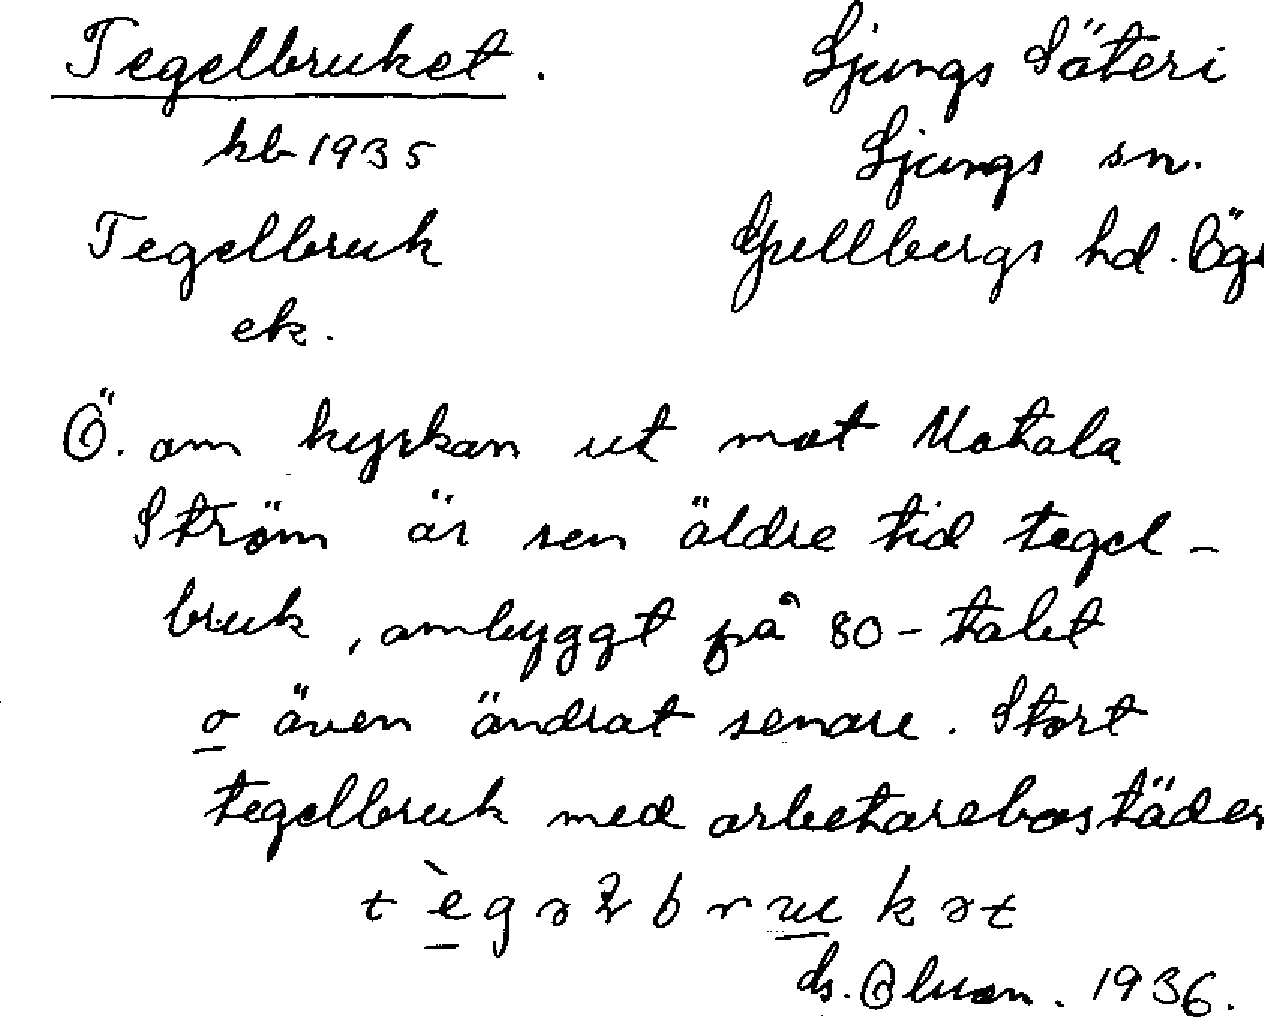 Tegelbruket. Ljungs Säteri
kb 1935 Ljungs sn.
Tegelbruk Gullbergs hd. Ög
ek.
Ö. om kyrkan ut mot Motala
Ström är sen äldre tid tegel-
bruk, ombyggt på 80-talet
o även ändrat senare. Stort
tegelbruk med arbetarebostäder
1936.